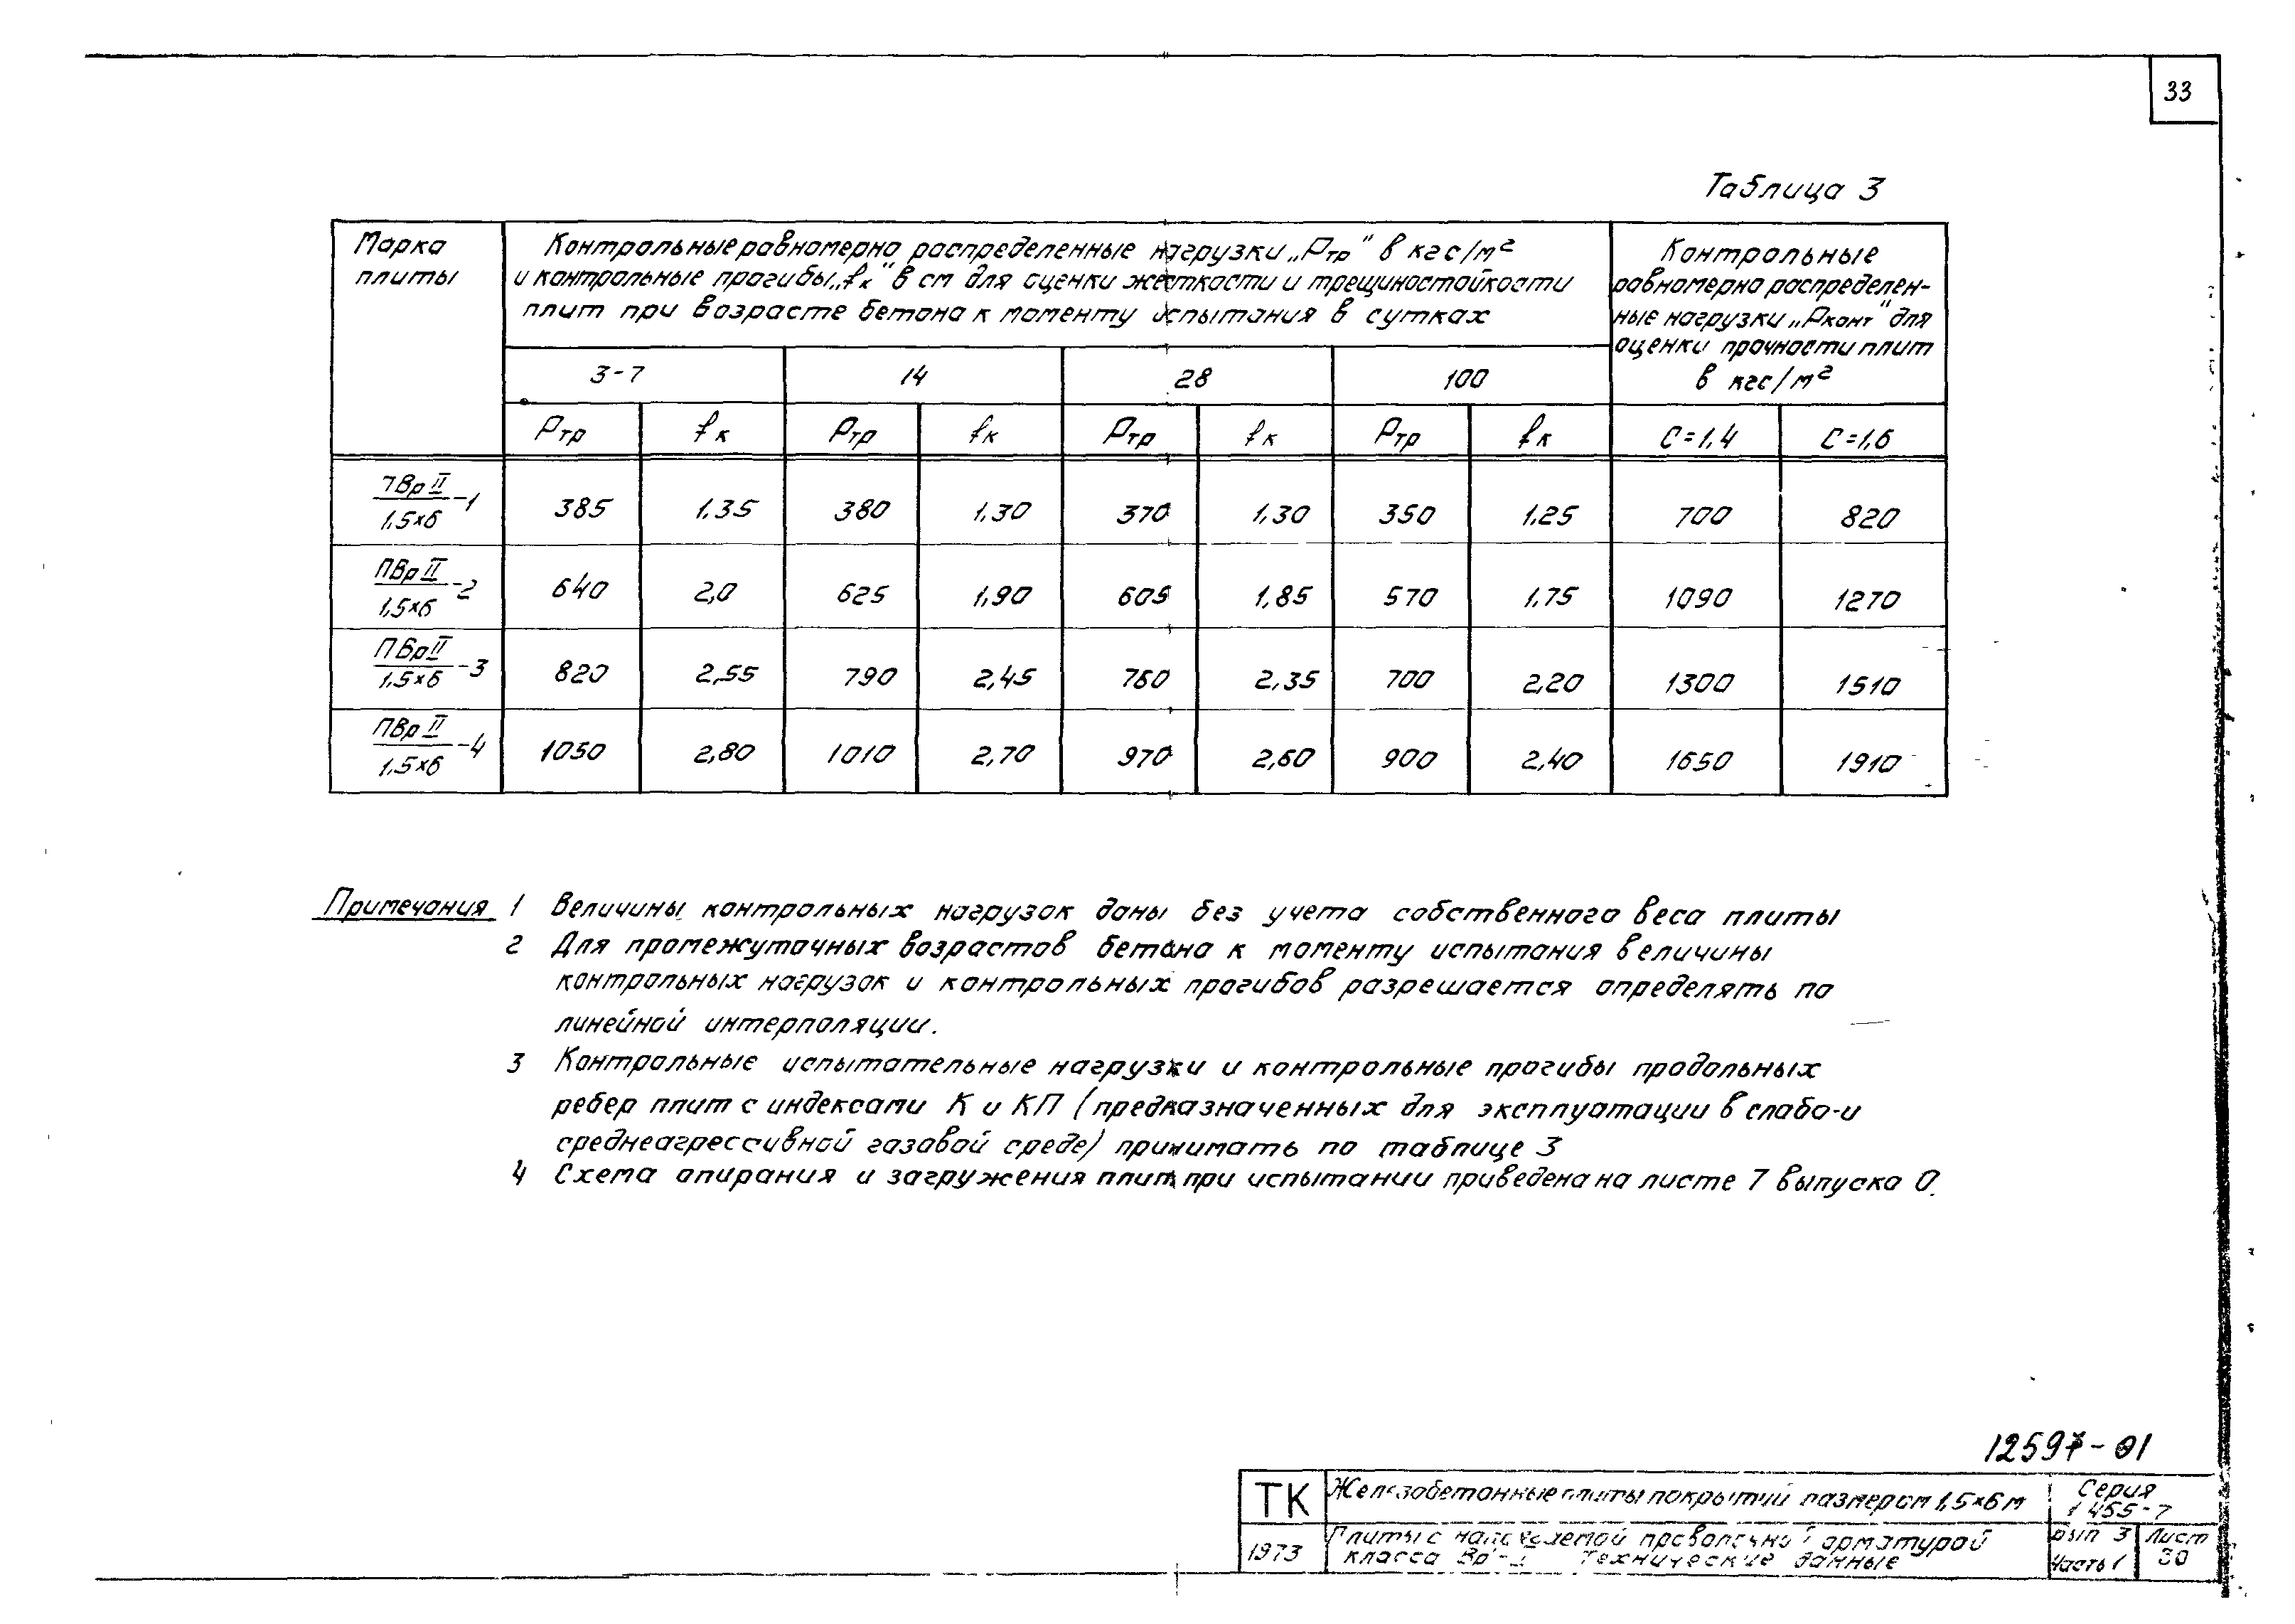 33
Таблица 3
Марка
плиты
Контрольные равномерно распределенные нагрузки „Ртр" в кгс/м²
и контрольные прогибы „fк" в см для оценки жесткости и трещиностойкости
плит при возрасте бетона к моменту испытания в сутках
Контрольные
равномерно распределен-
ные нагрузки „Рконт" для
оценки прочности плит
в кгс/м²
3-7 14 28 100
Ртр fк Ртр fк Ртр fк Ртр fк С=1,4 С=1,6
ПВрII/1,5×6-1 385 1,35 380 1,30 370 1,30 350 1,25 700 820
ПВрII/1,5×6-2 640 2,0 625 1,90 605 1,85 570 1,75 1090 1270
ПВрII/1,5×6-3 820 2,55 790 2,45 760 2,35 700 2,20 1300 1510
ПВрII/1,5×6-4 1050 2,80 1010 2,70 970 2,60 900 2,40 1650 1910
Примечания 1 Величины контрольных нагрузок даны без учета собственного веса плиты
2 Для промежуточных возрастов бетона к моменту испытания величины
контрольных нагрузок и контрольных прогибов разрешается определять по
линейной интерполяции.
3 Контрольные испытательные нагрузки и контрольные прогибы продольных
ребер плит с индексами К и КП (предназначенных для эксплуатации в слабо-и
среднеагрессивной газовой среде) принимать по таблице 3
4 Схема опирания и загружения плит при испытании приведена на листе 7 выпуска 0.
12597-01
ТК
1973
Железобетонные плиты покрытий размером 1,5×6м
Плиты с напрягаемой проволочной арматурой
класса Технические данные
Серия
1 455-7
Вып 3
Часть 1
Лист
30